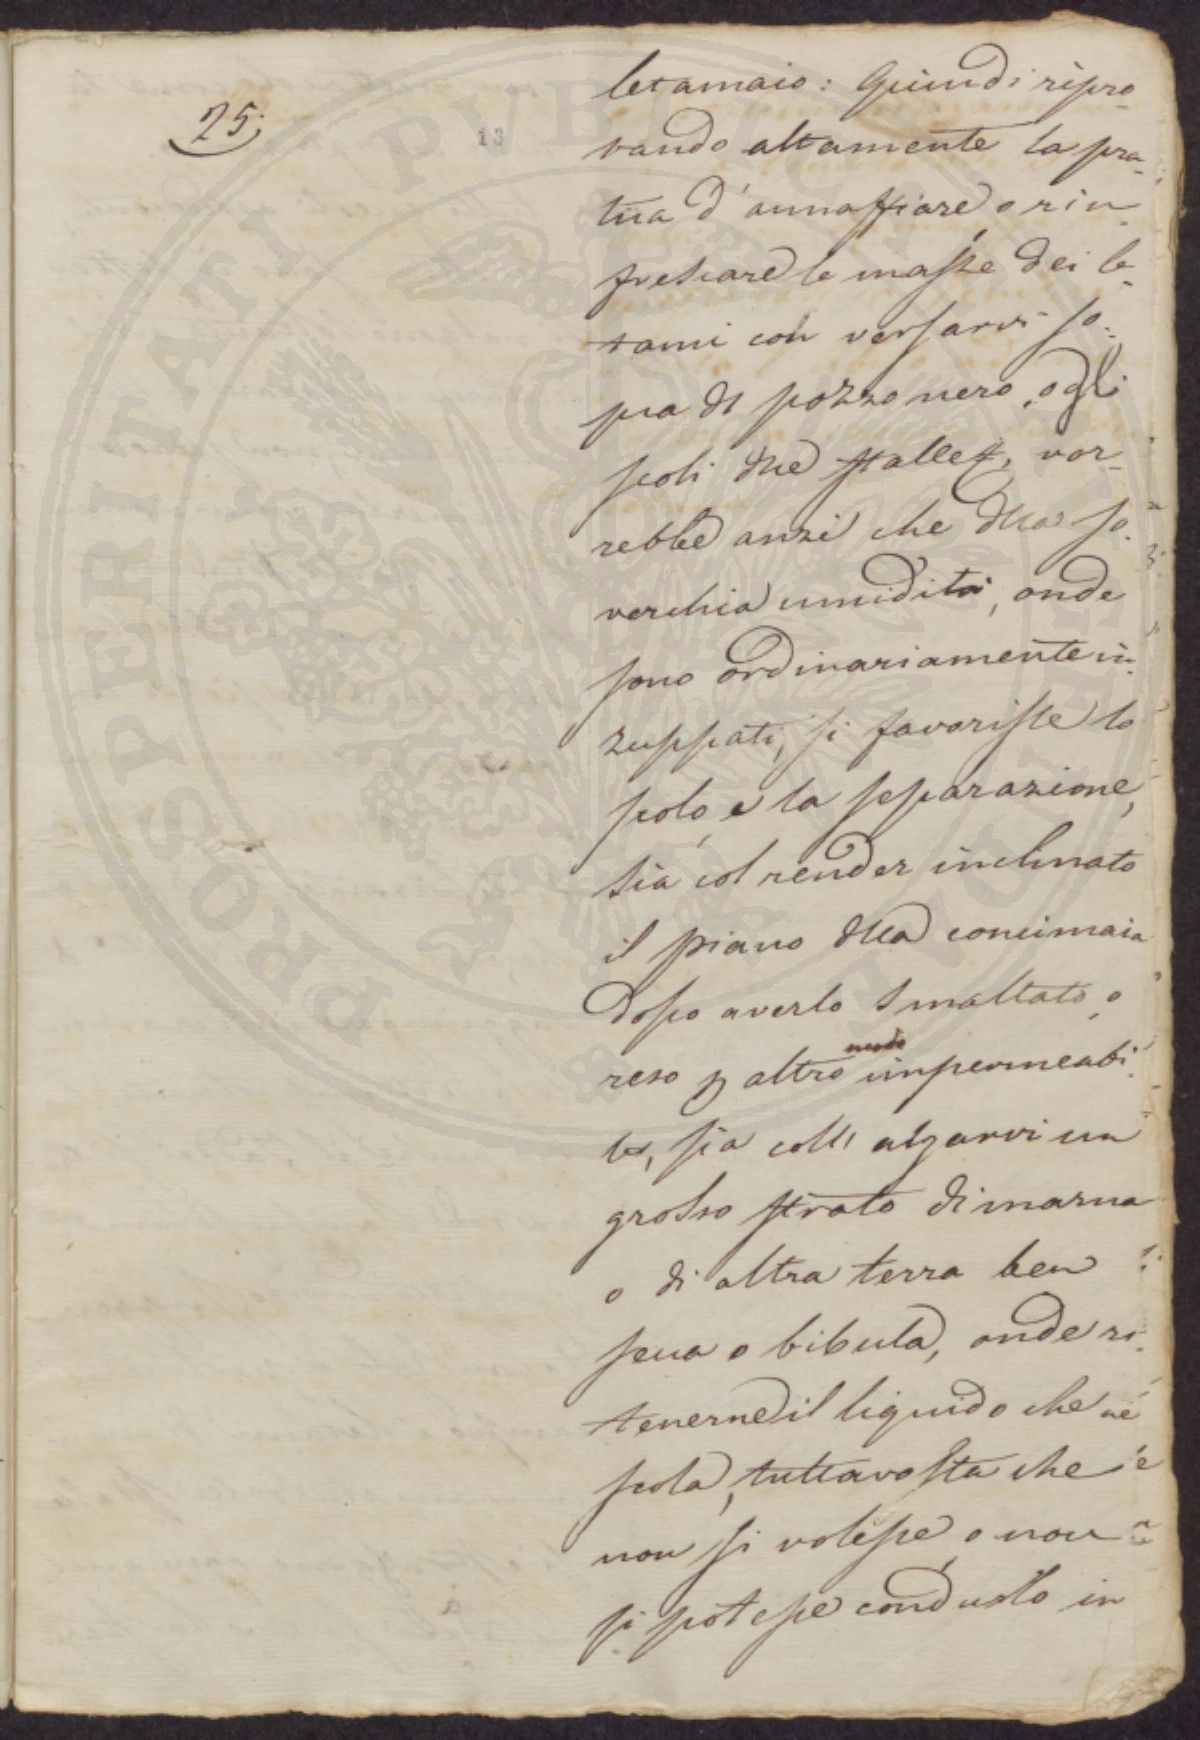 25.
13
letamaio: Quindi ripro-
vando altamente la pra-
tica d'annaffiare, o rin-
frescare le masse dei le-
tami con versarvi so-
pra di pozzo nero, o gli
scoli delle stalle, vor-
rebbe anzi che della so-
verchia umidità, onde
sono ordinariamente in-
zuppati, si favorisse lo
scolo, e la separazione,
sia col render inclinato
il piano della concimaia
dopo averlo smaltato, o
reso p altro modo impermeabi-
le, sia coll'alzarvi un
grosso strato di marna
o di altra terra ben
secca o bibula, onde ri-
tenerne il liquido che ne
scola, tuttavolta che
non si volesse, o non
si potesse condurlo in
PROSPERITATI PVBLICAE